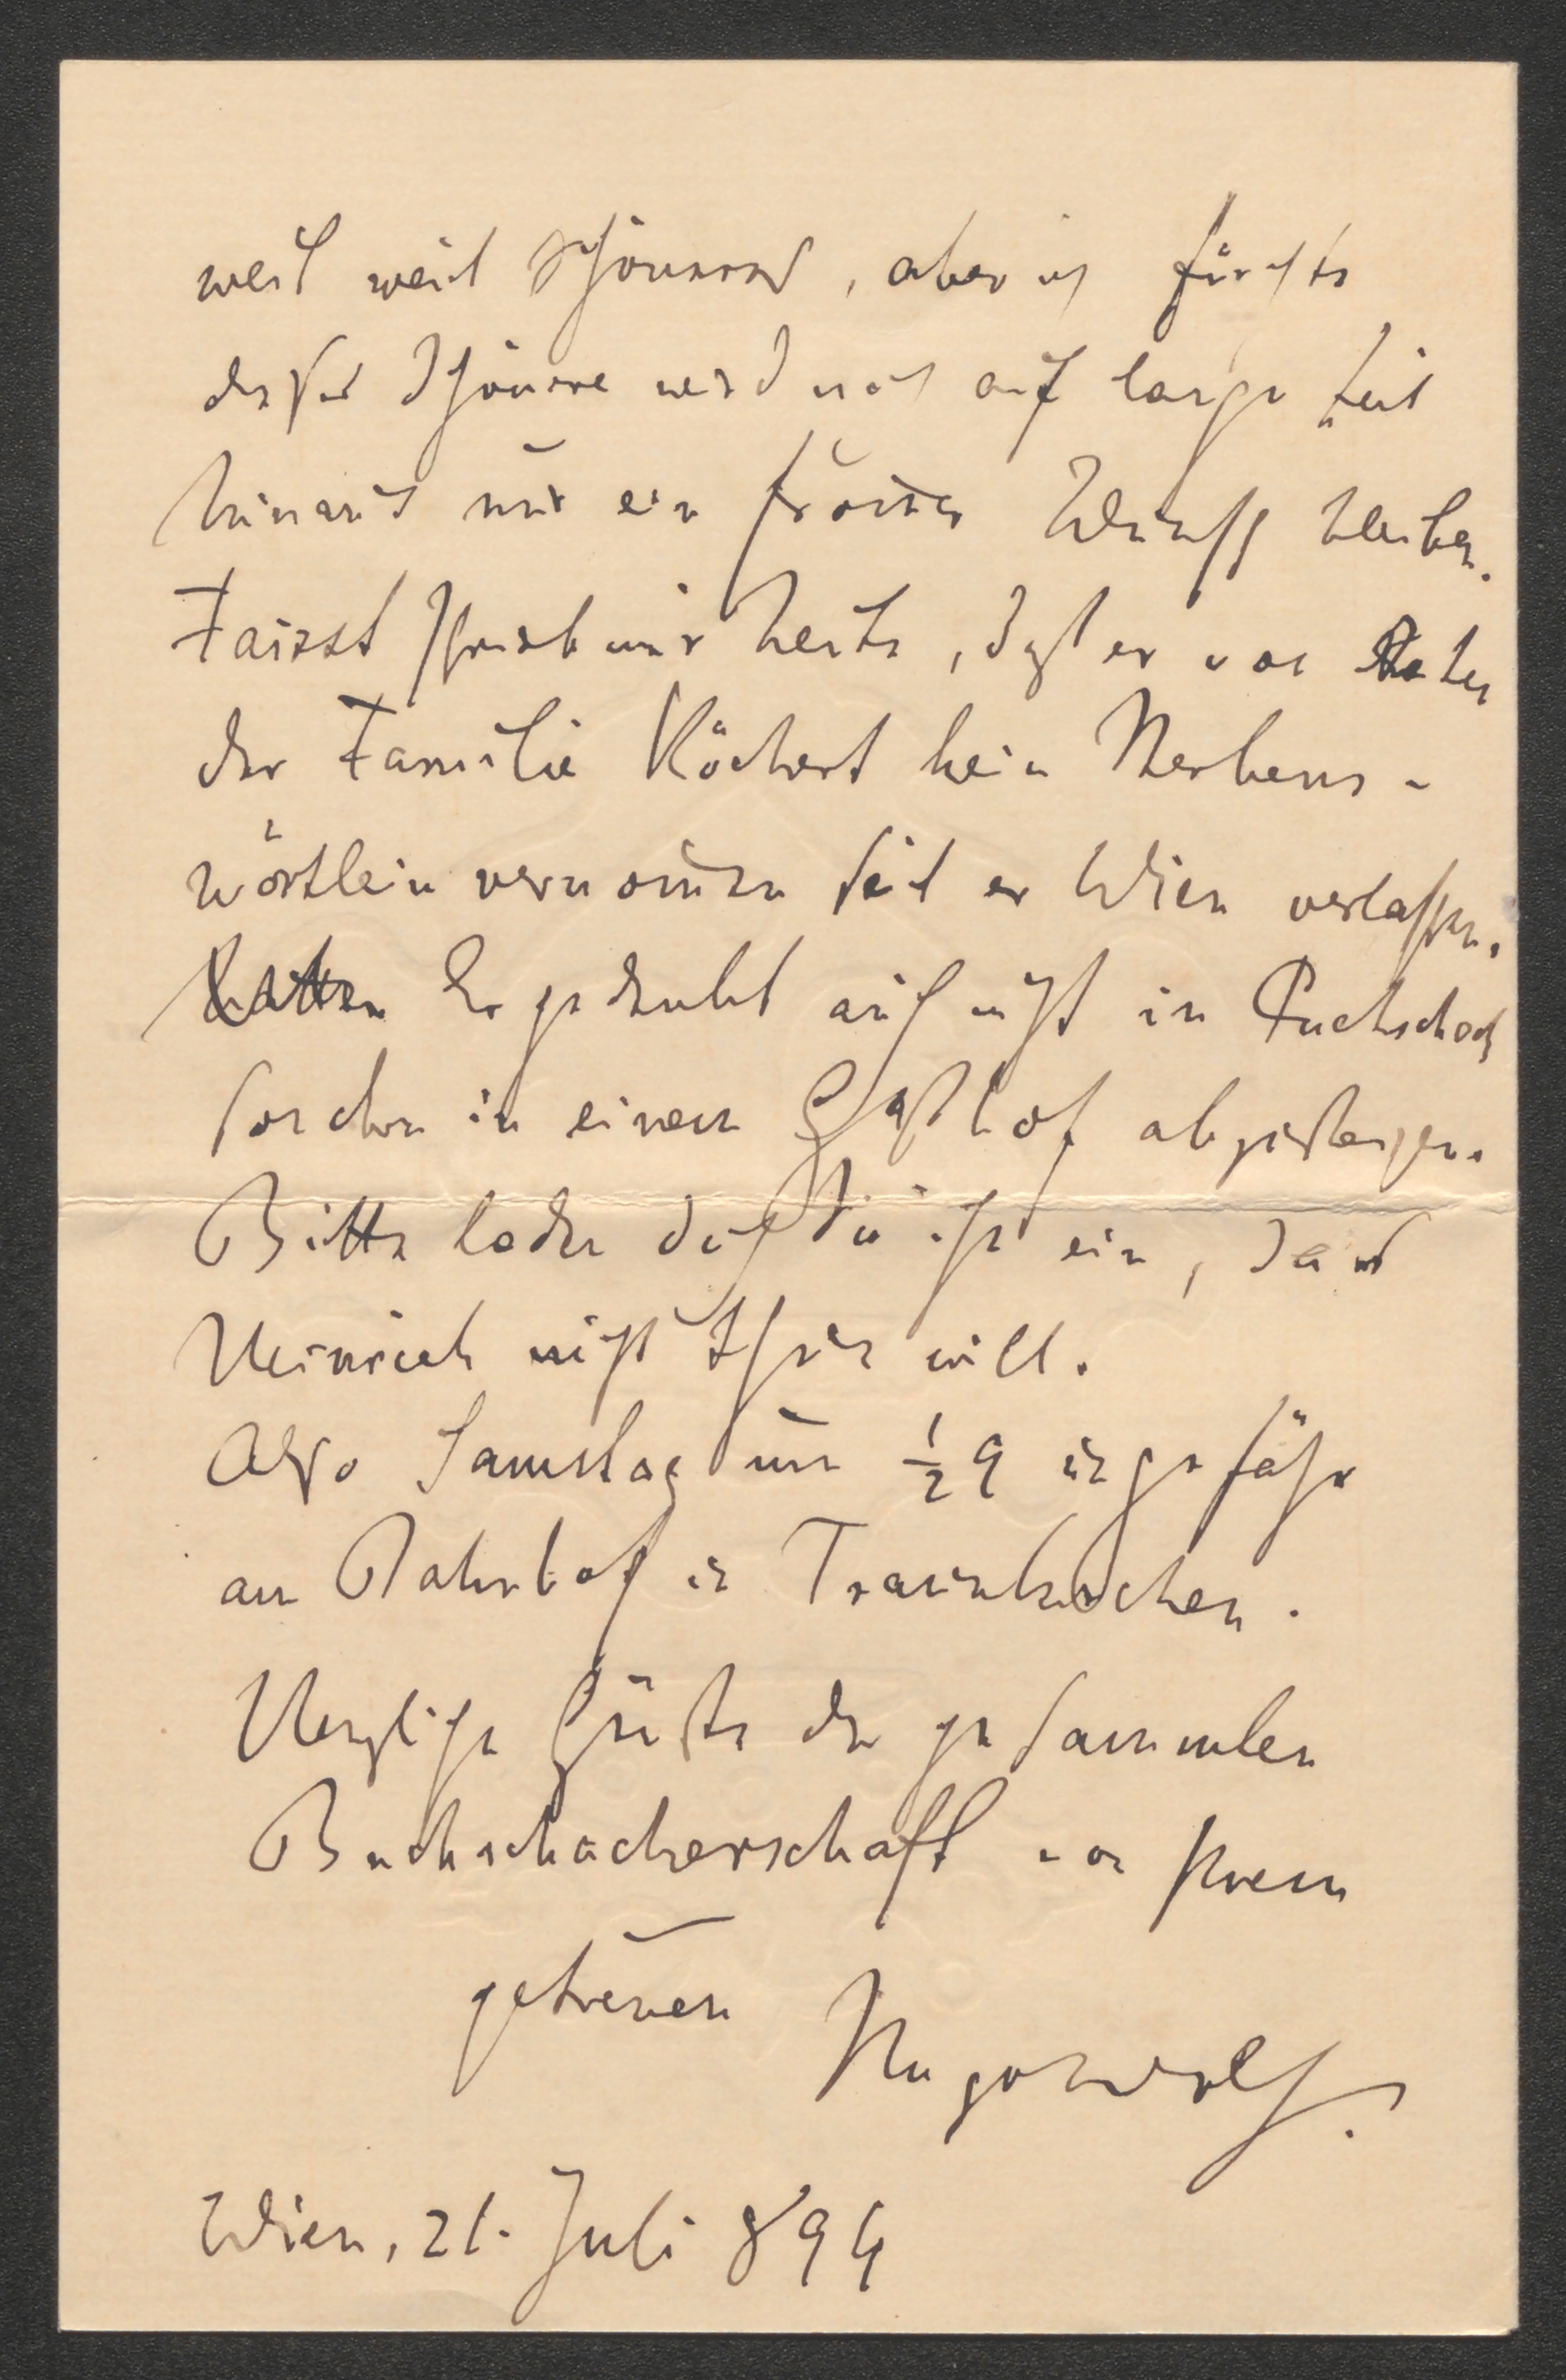 weit weit Schöneres, aber ich fürchte
dieses Schönere wird noch auf lange Zeit
hinaus nur ein frommer Wunsch bleiben.
Faisst schreibt mir heute, daß er von Seiten
der Familie Köchert kein Sterbens-
wörtlein vernommen seit er Wien verlassen.
Er gedenkt auch nicht in Puchschach
sondern in einem Gasthof abzusteigen.
Bitte laden doch Sie ihn ein, da es
Heinrich nicht thun will.
Also Samstag um ½9 ungefähr
am Bahnhof in Traunkirchen.
Herzliche Grüße der gesammten
Buchschacherschaft von Ihrem
getreuen Hugo Wolf.
Wien, 21. Juli 894